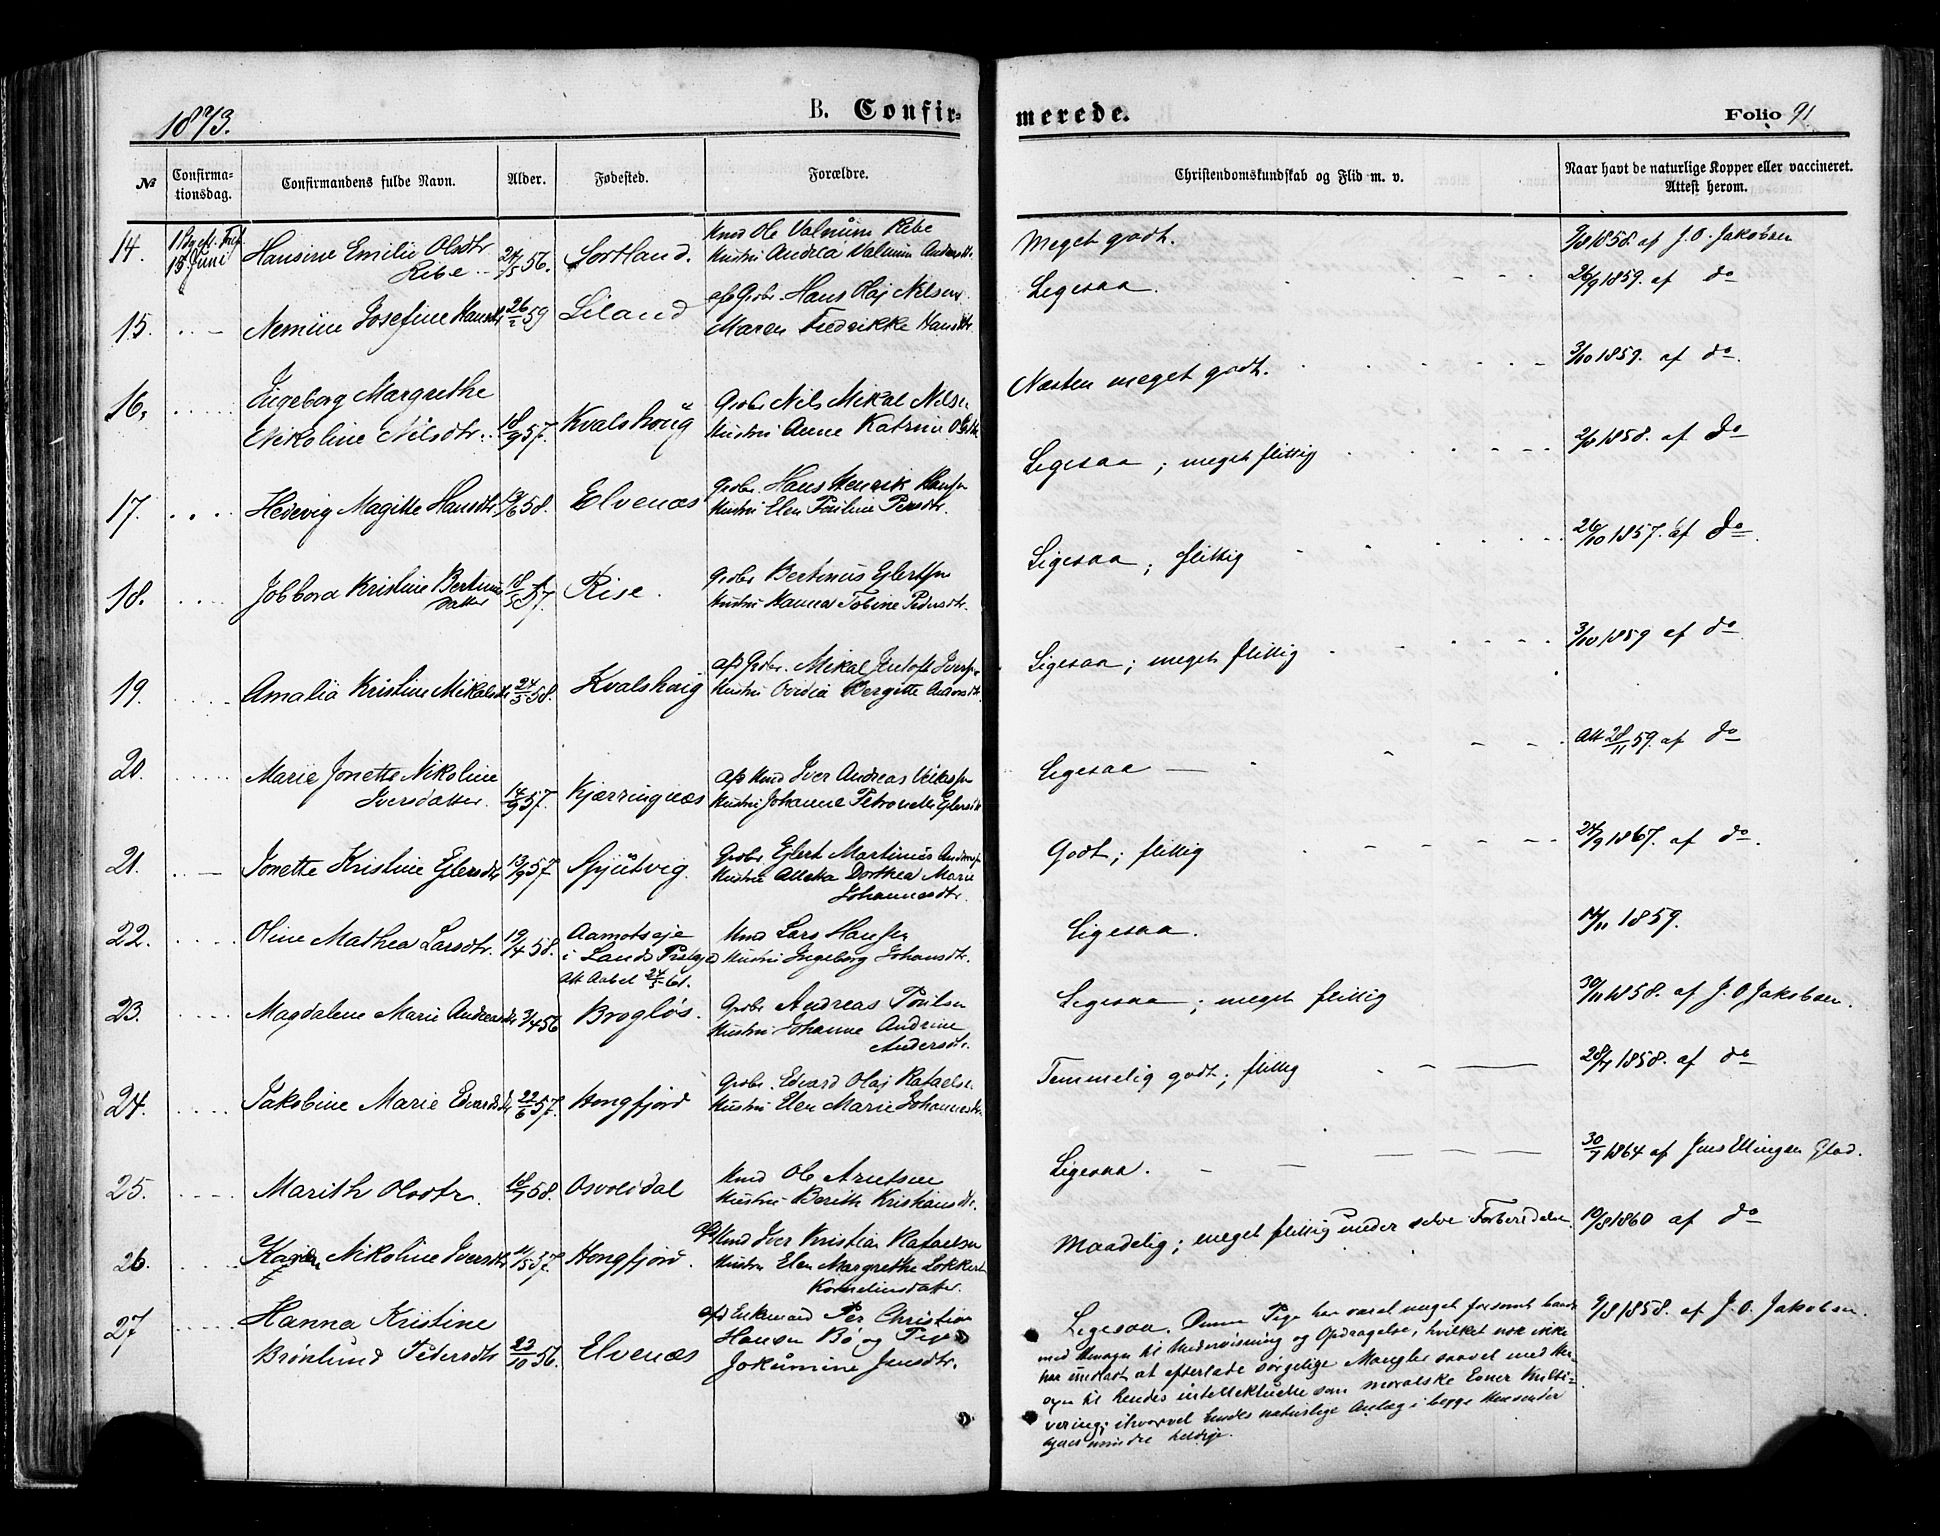 1873.
B. Confir-
merede.
Folio 91.
№
Confirma-
tionsdag.
Confirmandens fulde Navn.
Alder.
Fødested.
Forældre.
Christendomskundskab og Flid m. v.
Naar havt de naturlige Kopper eller vaccineret.
Attest herom.
14. 15 Juni Hansine Emilie Olsdtr
Ribe 24/5 56. Sortland. Kmd Ole Valnum Ribe
Hustru Andrea Valnum
Meget godt. 9/8 1858 af J. O. Jakobsen
15. Josefine 26/2 59 Liland afd Grdbr. Hans Olaj Nilsen
Maren Fredrikke Hansdtr.
Ligesaa. 26/9 1859. af do
16. Ingeborg Margrethe
Nikoline Nilsdtr. 18/9 57. Kvalshoug Grdbr. Nils Mikal Nilsen
Hustru Anne Katrine
Næsten meget godt. 3/10 1859. af do.
17. Hedevig Magitte Hansdtr 58. Elvenæs Grdbr. Hans Henrik
Hustru Elen Pauline Persdtr.
Ligesaa; meget flittig 1858. af do
18. Jobbora Kristine Bertinus
datter 18/5 57. Rise. Grdbr Bertinus Ejlertsen
Hustru Hanna Tobine Pedersdtr.
Ligesaa; flittig 26/10 1857. af do.
19. Amalia Kristine Mikalsdtr 24/3 58. Kvalshoug afd Grdbr. Mikal Jentoft
Hustru Bergitte
Ligesaa; meget flittig 3/10 1859 af do
20. Marie Jonette Nikoline
Iversdatter. 14/9 57. Kjærringnæs afd Kmd Iver Andreas
Hustru Johanne Petronelle
Ligesaa Att 28/11 59. af do
21. Jonette Kristine Ejlersdtr 13/9 57 Spjutvig. Grdbr. Ejlert Martinus
Hustru Dorthea Marie
Johannesdtr.
Godt; flittig 24/9 1867. af do.
22. Oline Mathea Larsdtr. 19/4 58. Aamotseje
i Land Kmd Lars Hansen
Hustru Ingeborg Johansdtr.
Ligesaa. 14/11 1859.
23. Magdalene Marie 3/4 56 Brogløs. Grdbr Andreas
Hustru Johanne Andrine
Andersdtr.
Ligesaa; meget flittig 30/11 1858. af J. O. Jakobsen.
24. Jakobine Marie 22/6 57. Hongfjord Grdbr. Edvard Olaj Rafaelsen
Hustru Elen Marie
Temmelig godt; flittig 1858. af do
25. Marith Olsdtr. 18/7 58. Osvoldal Kmd Ole Arntsen
Hustru Berith Kristiansdtr.
Ligesaa. 30/7 1864 af Jens Ellingsen
26. Karen Nikoline Iversdtr 57. Hongfjord. afd Kmd Iver Kristian Rafaelsen
Hustru Elen Margrethe
Korneliusdatter.
Maadelig; meget flittig under selve Forberedelsen. 19/8 1860 af do
27 Hanna Kristine
Brønlund Pedersdtr 23/10 56. Elvenæs afd Enkemand Per Christian
Hansen Bø og Pige
Jokumine Jensdtr.
Ligesaa. Denne Pige har været meget forsømt
med Hensyn til Undervisning og Opdragelse, hvilket nok ikke
har undladt at efterlade sørgelige Mangler saavel med Hen-
syn til hendes intellektuelle som moralske Evner Kulti-
vering; ihvorvel hendes naturlige Anlæg i begge Henseender
mindre heldige.
9/8 1858. af J. O. Jakobsen.